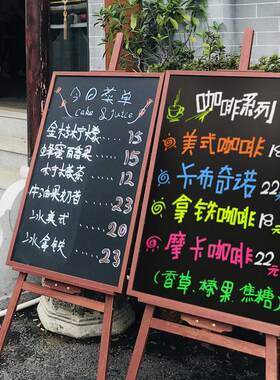 今日菜单
cake & juice
金桔柠檬 15
蜂蜜百香果 15
柠檬茶 12
牛油果奶昔 23
冰美式 20
冰拿铁 23
咖啡系列
美式咖啡
卡布奇诺 22
拿铁咖啡
摩卡咖啡 22元
(香草.榛果.焦糖